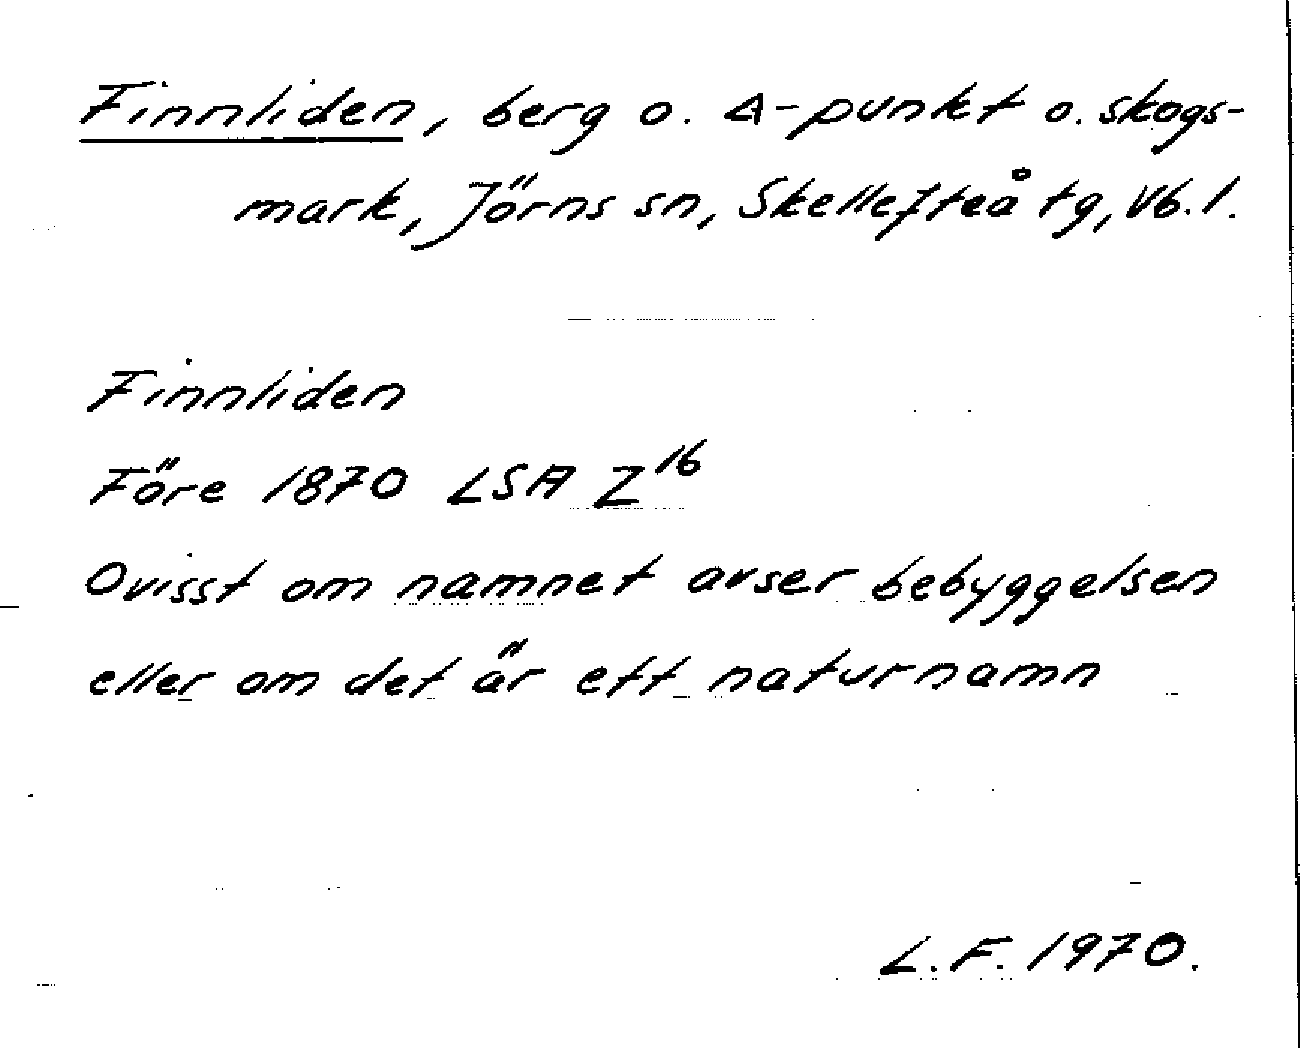 Finnliden, berg o. Δ-punkt o. skogs-
mark, Jörns sn, Skellefteå tg, Vb. l.
Finnliden
Före 1870 LSA Z¹⁶
Ovisst om namnet avser bebyggelsen
eller om det är ett naturnamn
L.F. 1970.